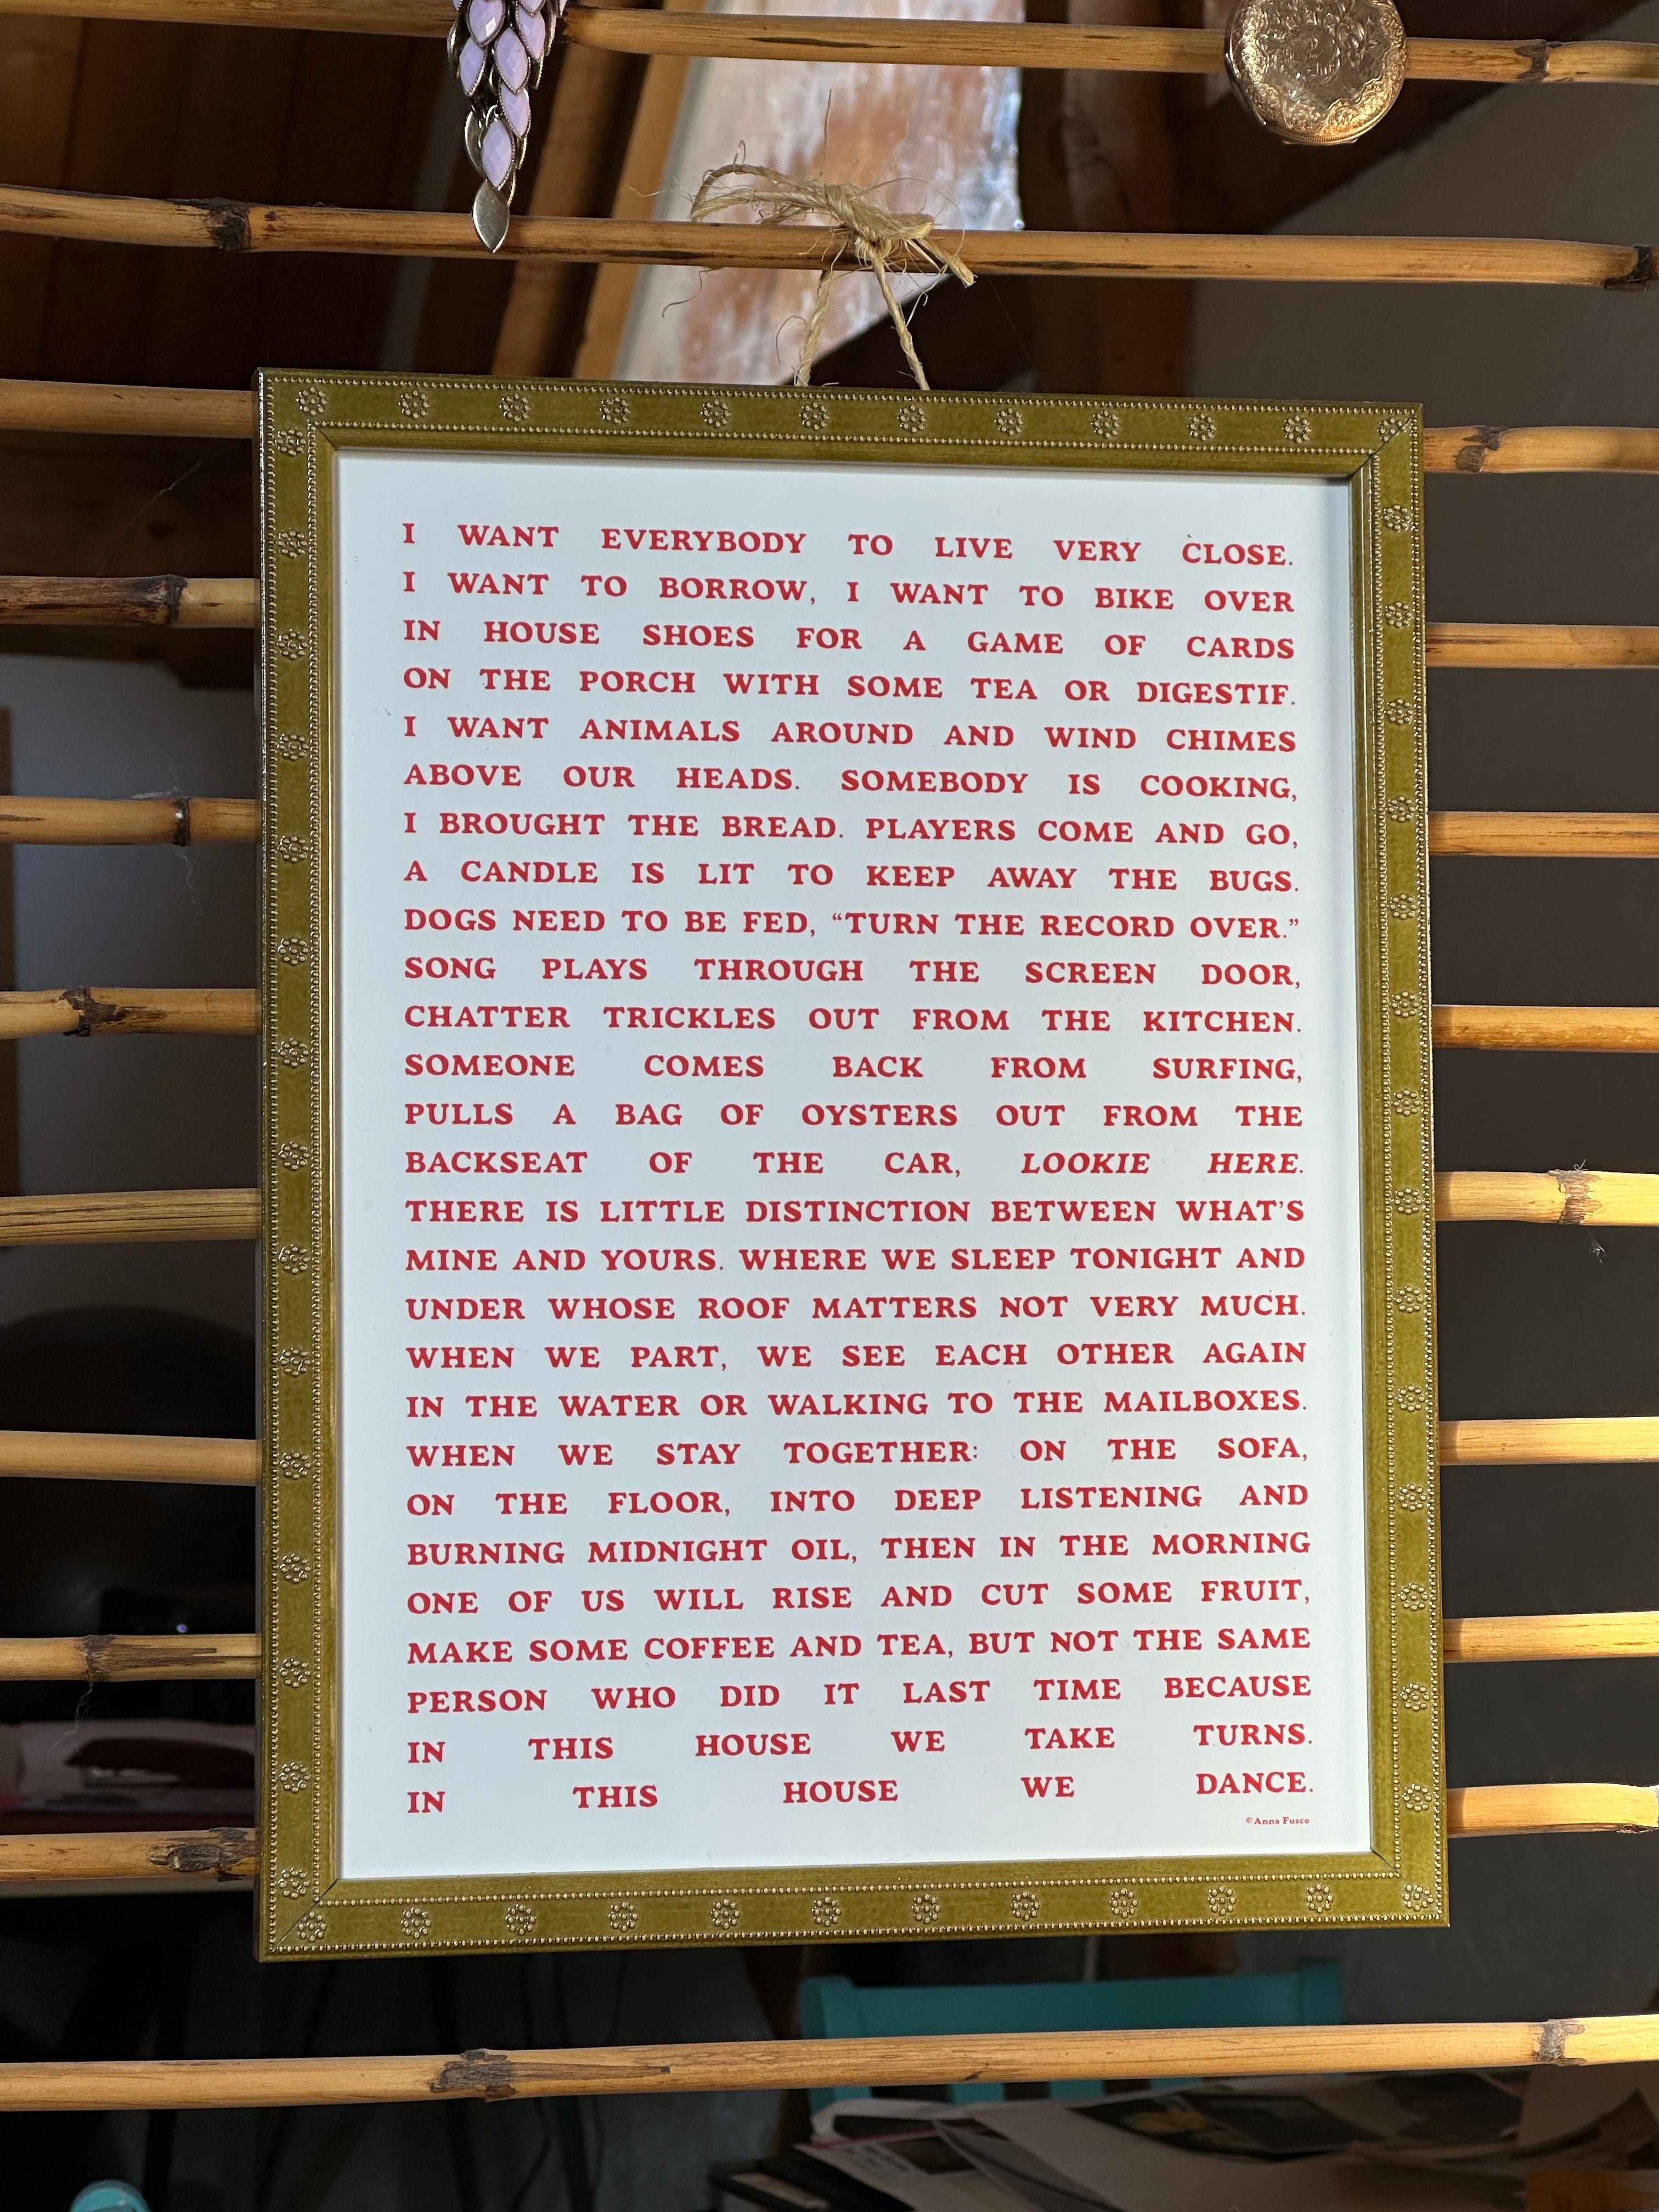 I WANT EVERYBODY TO LIVE VERY CLOSE.
I WANT TO BORROW, I WANT TO BIKE OVER
IN HOUSE SHOES FOR A GAME OF CARDS
ON THE PORCH WITH SOME TEA OR DIGESTIF.
I WANT ANIMALS AROUND AND WIND CHIMES
ABOVE OUR HEADS. SOMEBODY IS COOKING,
I BROUGHT THE BREAD. PLAYERS COME AND GO,
A CANDLE IS LIT TO KEEP AWAY THE BUGS.
DOGS NEED TO BE FED, “TURN THE RECORD OVER.”
SONG PLAYS THROUGH THE SCREEN DOOR,
CHATTER TRICKLES OUT FROM THE KITCHEN.
SOMEONE COMES BACK FROM SURFING,
PULLS A BAG OF OYSTERS OUT FROM THE
BACKSEAT OF THE CAR, LOOKIE HERE.
THERE IS LITTLE DISTINCTION BETWEEN WHAT’S
MINE AND YOURS. WHERE WE SLEEP TONIGHT AND
UNDER WHOSE ROOF MATTERS NOT VERY MUCH.
WHEN WE PART, WE SEE EACH OTHER AGAIN
IN THE WATER OR WALKING TO THE MAILBOXES.
WHEN WE STAY TOGETHER: ON THE SOFA,
ON THE FLOOR, INTO DEEP LISTENING AND
BURNING MIDNIGHT OIL, THEN IN THE MORNING
ONE OF US WILL RISE AND CUT SOME FRUIT,
MAKE SOME COFFEE AND TEA, BUT NOT THE SAME
PERSON WHO DID IT LAST TIME BECAUSE
IN THIS HOUSE WE TAKE TURNS.
IN THIS HOUSE WE DANCE.
©Anna Fusco